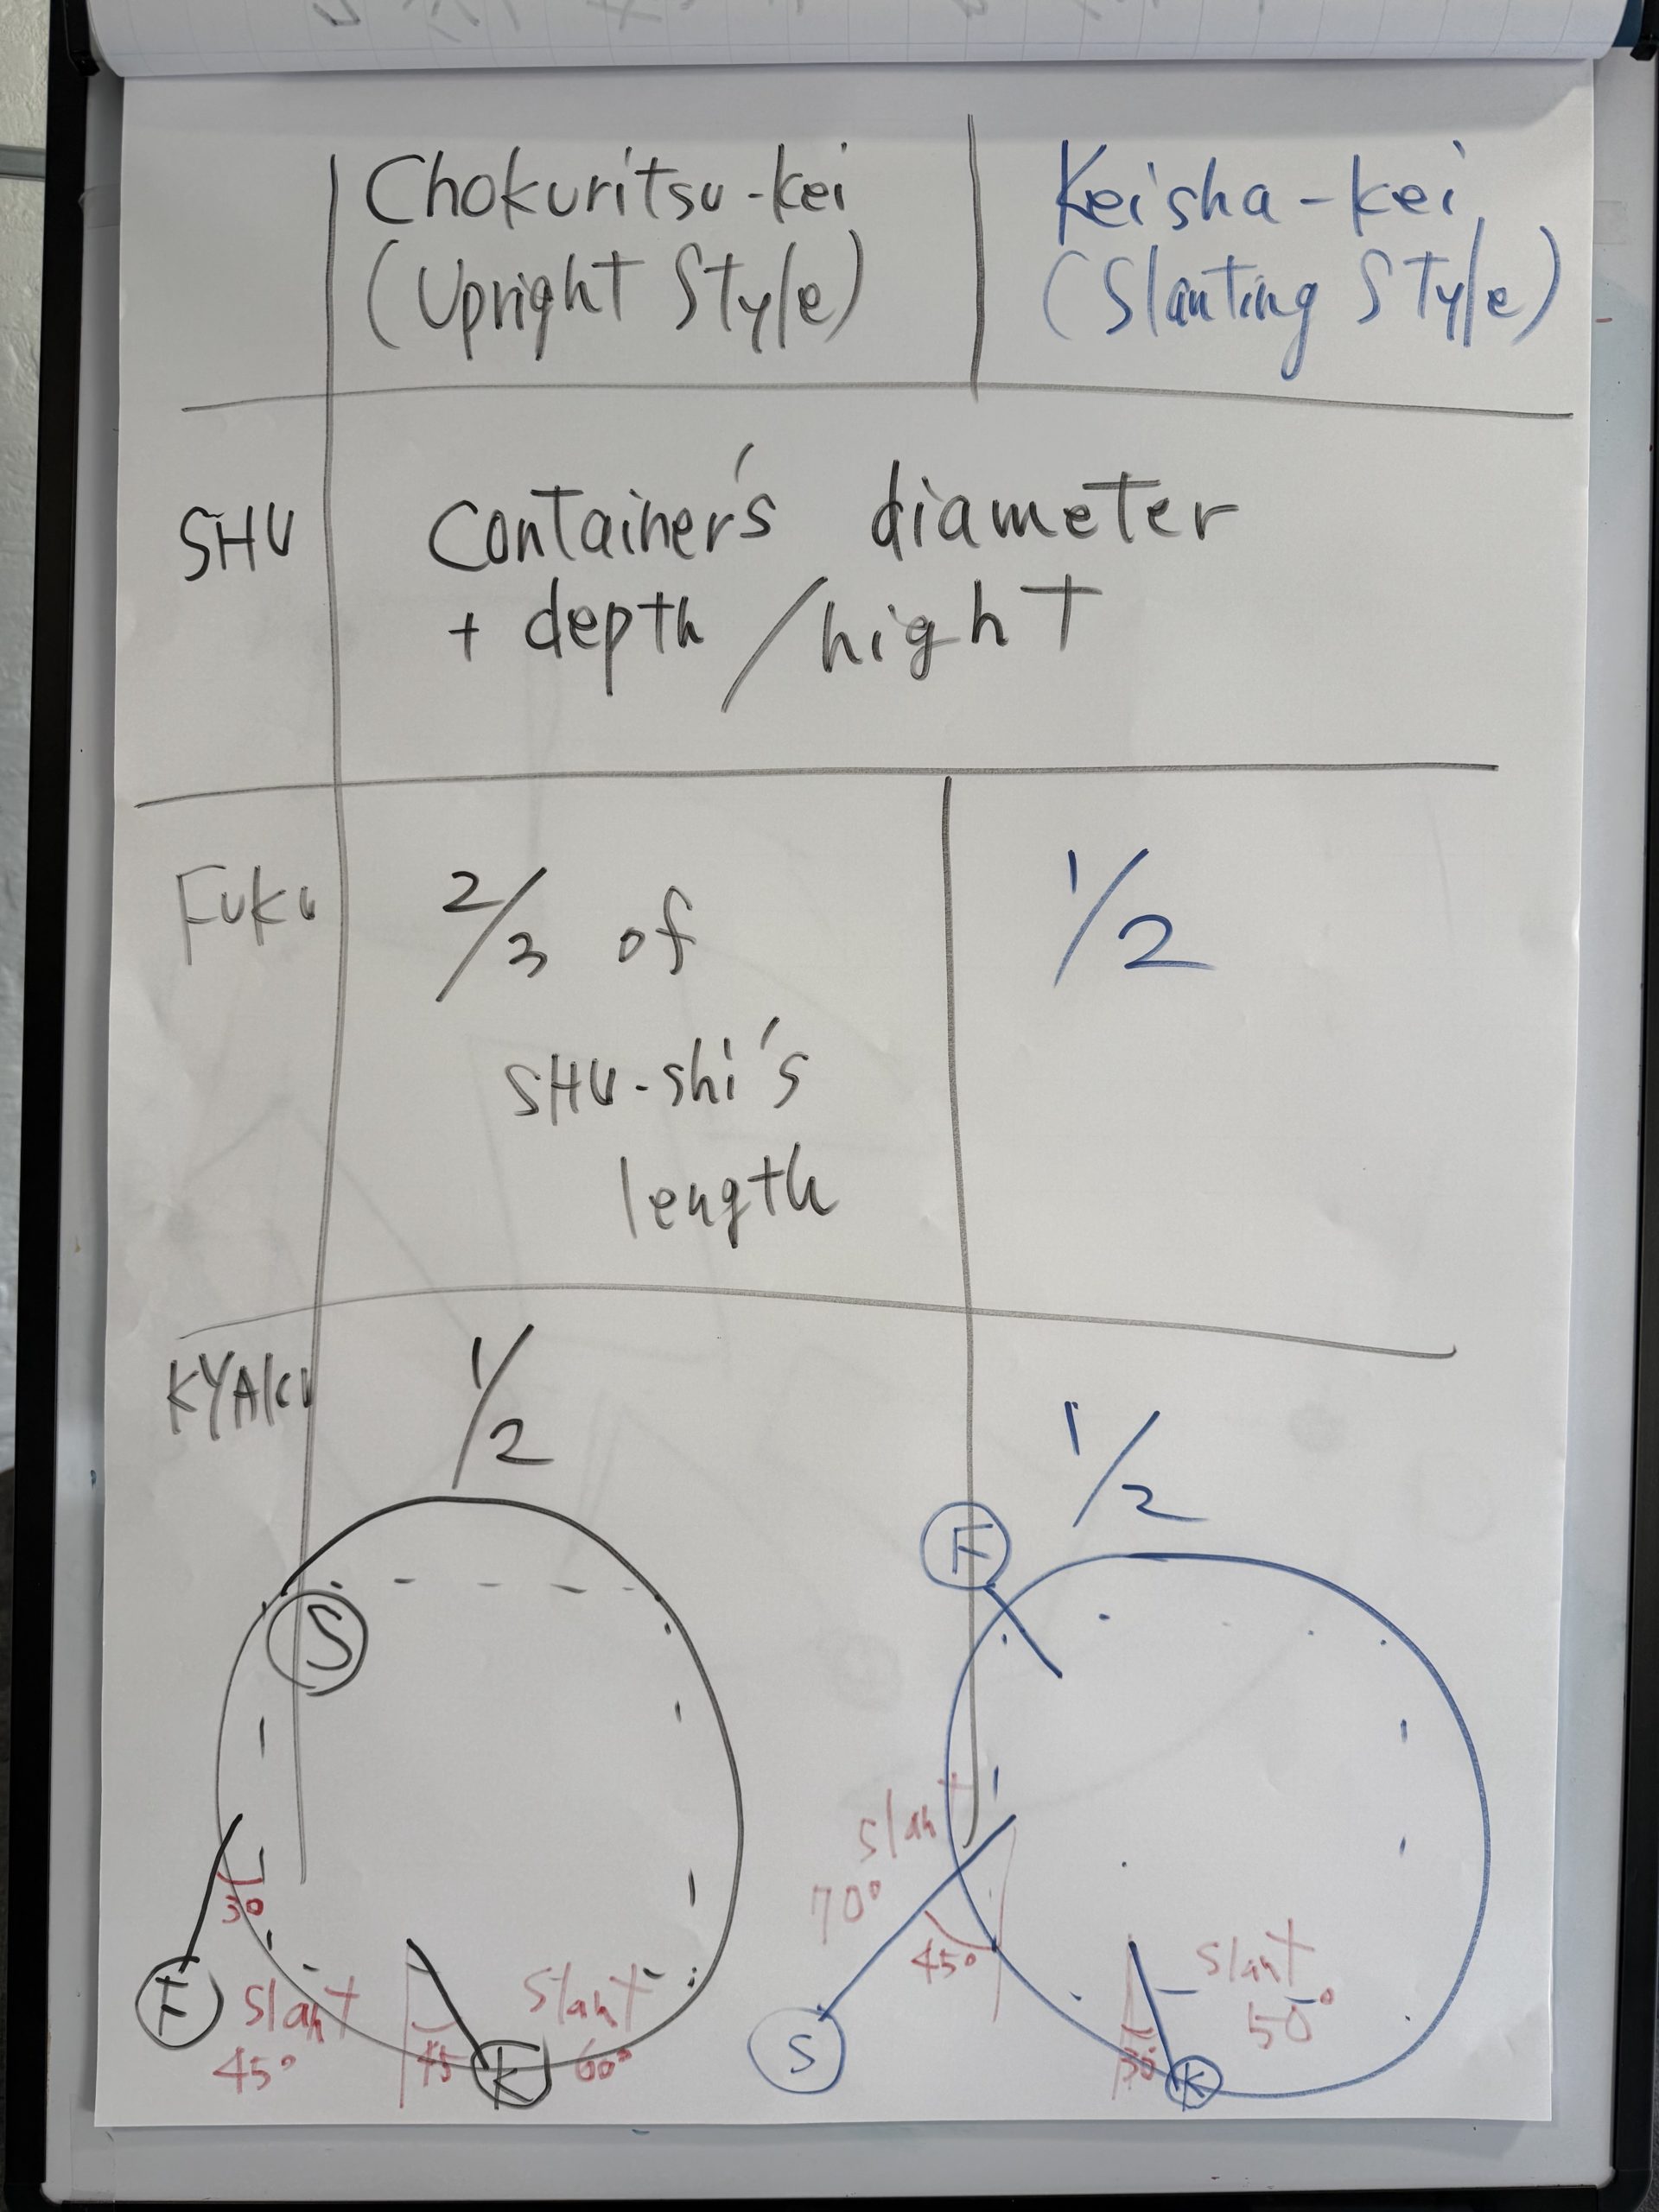 Chokuritsu-kei
(Upright Style)
Keisha-kei
(Slanting Style)
SHU
Container's diameter
+ depth / hight
FUKU
2/3 of
SHU-shi's
length
1/2
KYAKU
1/2
1/2
S
30
F
slant
45°
45
K
slant
60°
F
slant
70°
45°
S
slant
50°
30
K